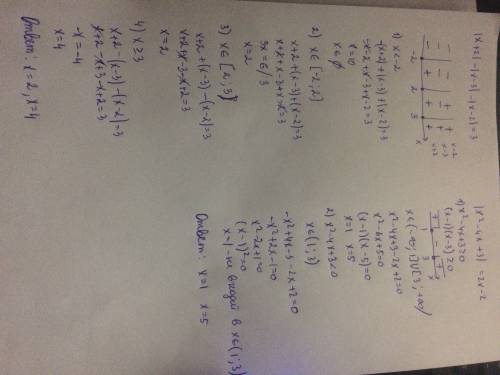 |x+2|-|x-3|-|x-2|=3
x-2
x-3
x+2
-2 2 3 x
1) x<-2
-(x+2)+(x-3)+(x-2)=3
-x-2+x-3+x-2=3
x=10
x∈∅
2) x∈[-2;2]
x+2+(x-3)+(x-2)=3
x+2+x-3+x-2=3
3x=6/3
x=2
3) x∈[2;3)
x+2+(x-3)-(x-2)=3
x+2+x-3-x+2=3
x=2
4) x≥3
x+2-(x-3)-(x-2)=3
x+2-x+3-x+2=3
-x=-4
x=4
Ответ: x=2, x=4
|x²-4x+3|=2x-2
1) x²-4x+3≥0
(x-1)(x-3)≥0
+ 1 - 3 + x
x∈(-∞;1]∪[3;+∞)
x²-4x+3-2x+2=0
x²-6x+5=0
(x-1)(x-5)=0
x=1 x=5
2) x²-4x+3<0
x∈(1;3)
-x²+4x-3-2x+2=0
-x²+2x-1=0
x²-2x+1=0
(x-1)²=0
x=1-не входит в x∈(1;3)
Ответ: x=1 x=5